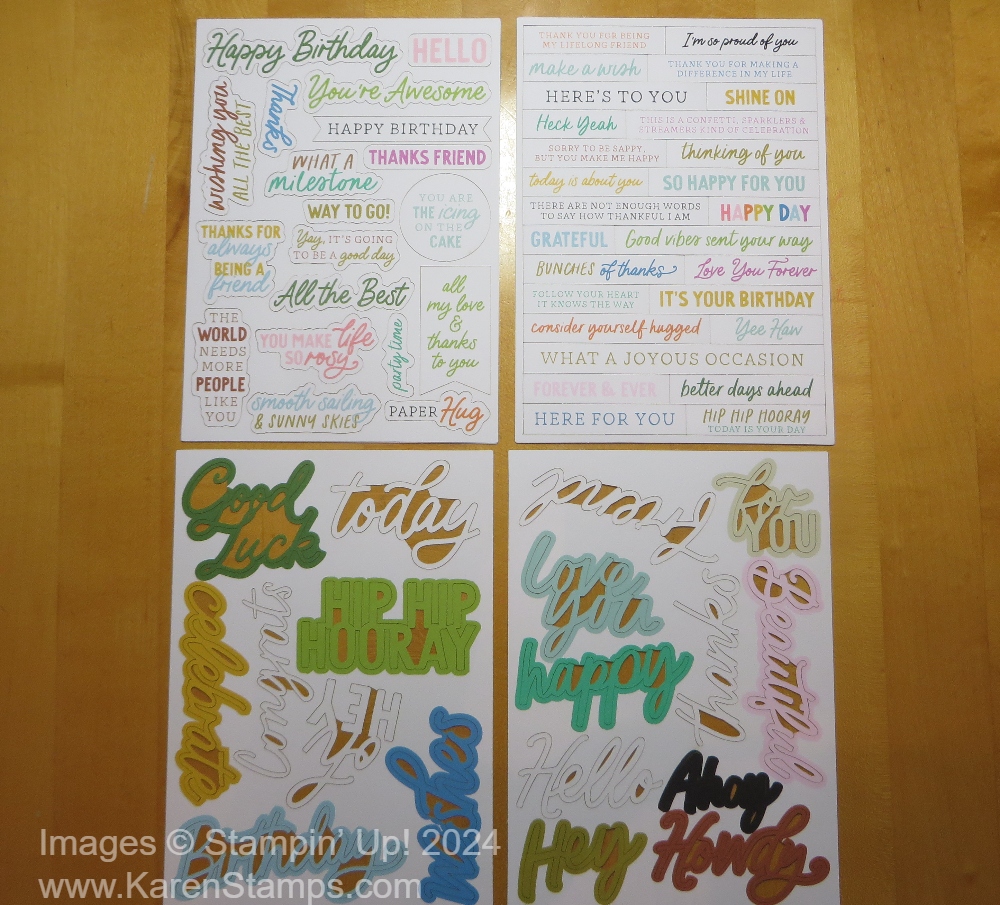 Happy Birthday
HELLO
You're Awesome
wishing you
ALL THE BEST
Thanks
HAPPY BIRTHDAY
WHAT A
milestone
THANKS FRIEND
WAY TO GO!
YOU ARE
THE icing
ON THE
CAKE
THANKS FOR
always
BEING A
friend
Yay, IT'S GOING
TO BE A good day
All the Best
all
my love
&
thanks
to you
THE
WORLD
NEEDS
MORE
PEOPLE
LIKE
YOU
YOU MAKE life
SO rosy
party time
smooth sailing
& SUNNY SKIES
PAPER Hug
THANK YOU FOR BEING
MY LIFELONG FRIEND
I'm so proud of you
make a wish
THANK YOU FOR MAKING A
DIFFERENCE IN MY LIFE
HERE'S TO YOU
SHINE ON
Heck Yeah
THIS IS A CONFETTI, SPARKLERS &
STREAMERS KIND OF CELEBRATION
SORRY TO BE SAPPY,
BUT YOU MAKE ME HAPPY
thinking of you
today is about you
SO HAPPY FOR YOU
THERE ARE NOT ENOUGH WORDS
TO SAY HOW THANKFUL I AM
HAPPY DAY
GRATEFUL
Good vibes sent your way
BUNCHES of thanks
Love You Forever
FOLLOW YOUR HEART
IT KNOWS THE WAY
IT'S YOUR BIRTHDAY
consider yourself hugged
Yee Haw
WHAT A JOYOUS OCCASION
FOREVER & EVER
better days ahead
HERE FOR YOU
HIP HIP HOORAY
TODAY IS YOUR DAY
Good
Luck
today
celebrate
congrats
HIP HIP
HOORAY
HEY
wishes
Birthday
Friend
for
YOU
Love
you
thanks
Beautiful
happy
Hello
Ahoy
Hey
Howdy
Images © Stampin' Up! 2024
www.KarenStamps.com